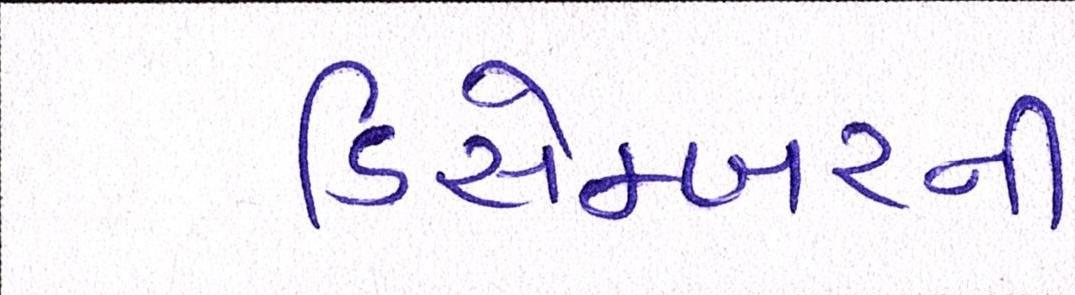 ડિસેમ્બરની